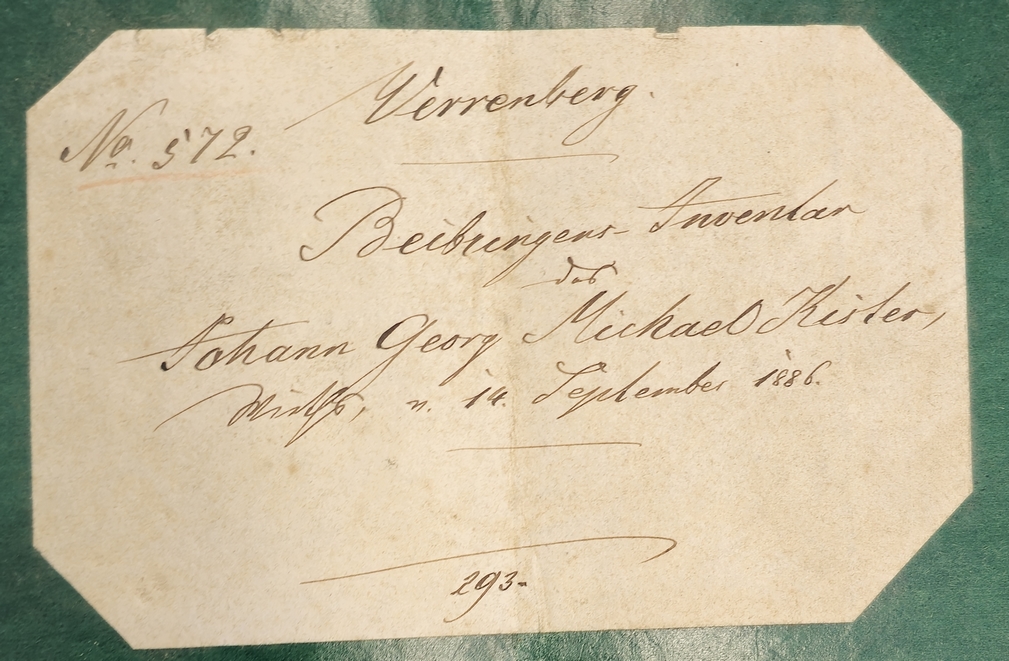 Verrenberg.
No. 572.
Beibringens-Inventar
des
Johann Georg Michael Kister,
Wirths, v. 14. September 1886.
293-